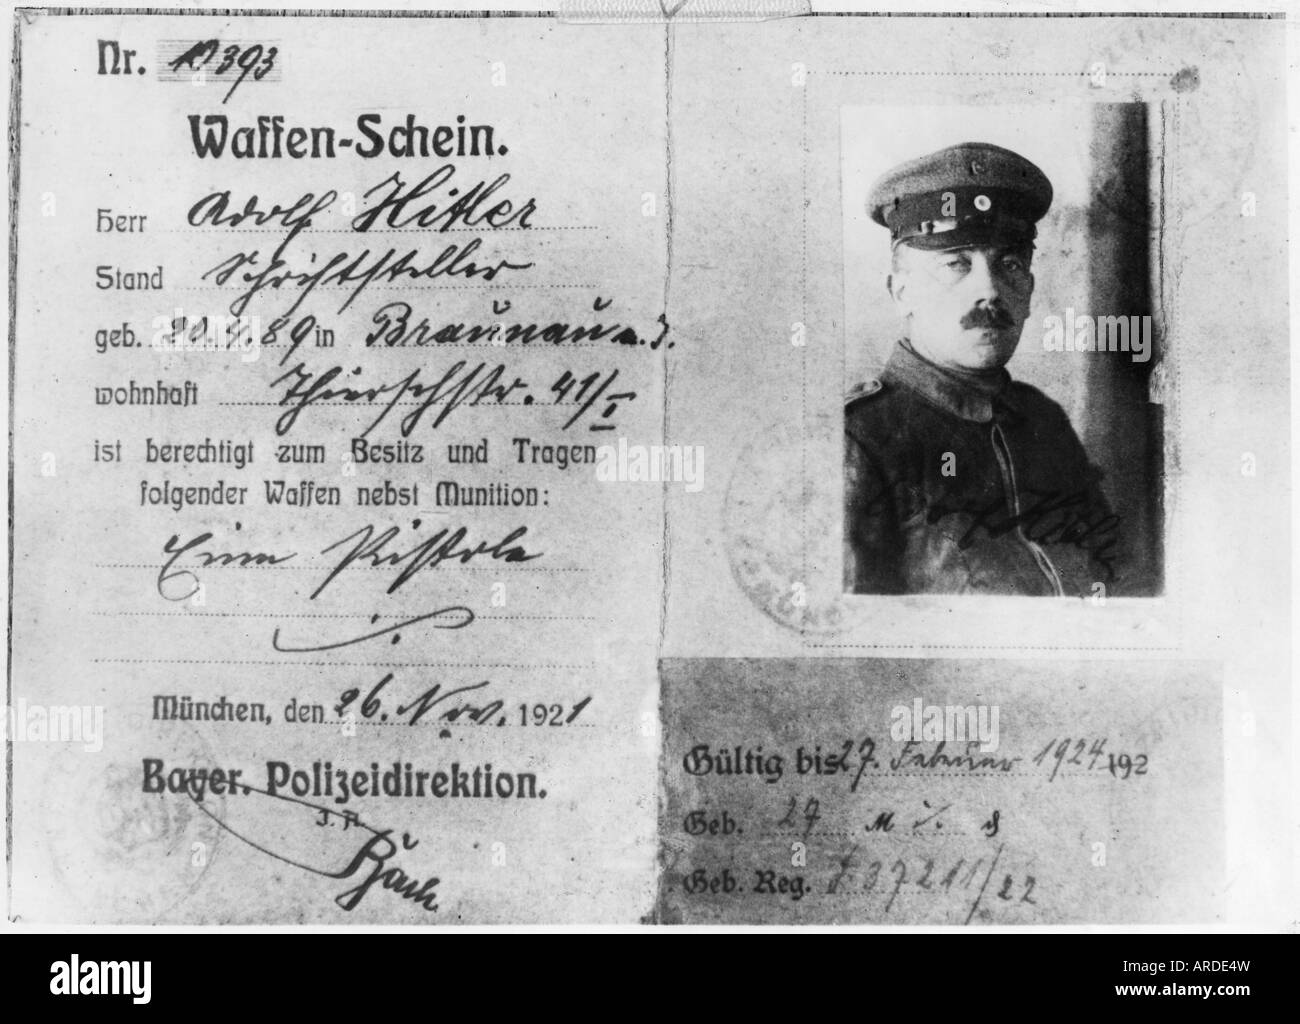 Nr. 10393
Waffen-Schein.
Herr Adolf Hitler
Stand Schriftsteller
geb. 20.4.89 in Braunau a. I.
wohnhaft Thierschstr. 41/I
ist berechtigt zum Besitz und Tragen
folgender Waffen nebst Munition:
Eine Pistole
München, den 26. Nov. 1921
Bayer. Polizeidirektion.
J. A.
Adolf Hitler
MÜNCHEN
Gültig bis 27. Februar 1924 192
Geb. 27 M
Geb. Reg. 37211/22
alamy
alamy
Image ID: ARDE4W
www.alamy.com